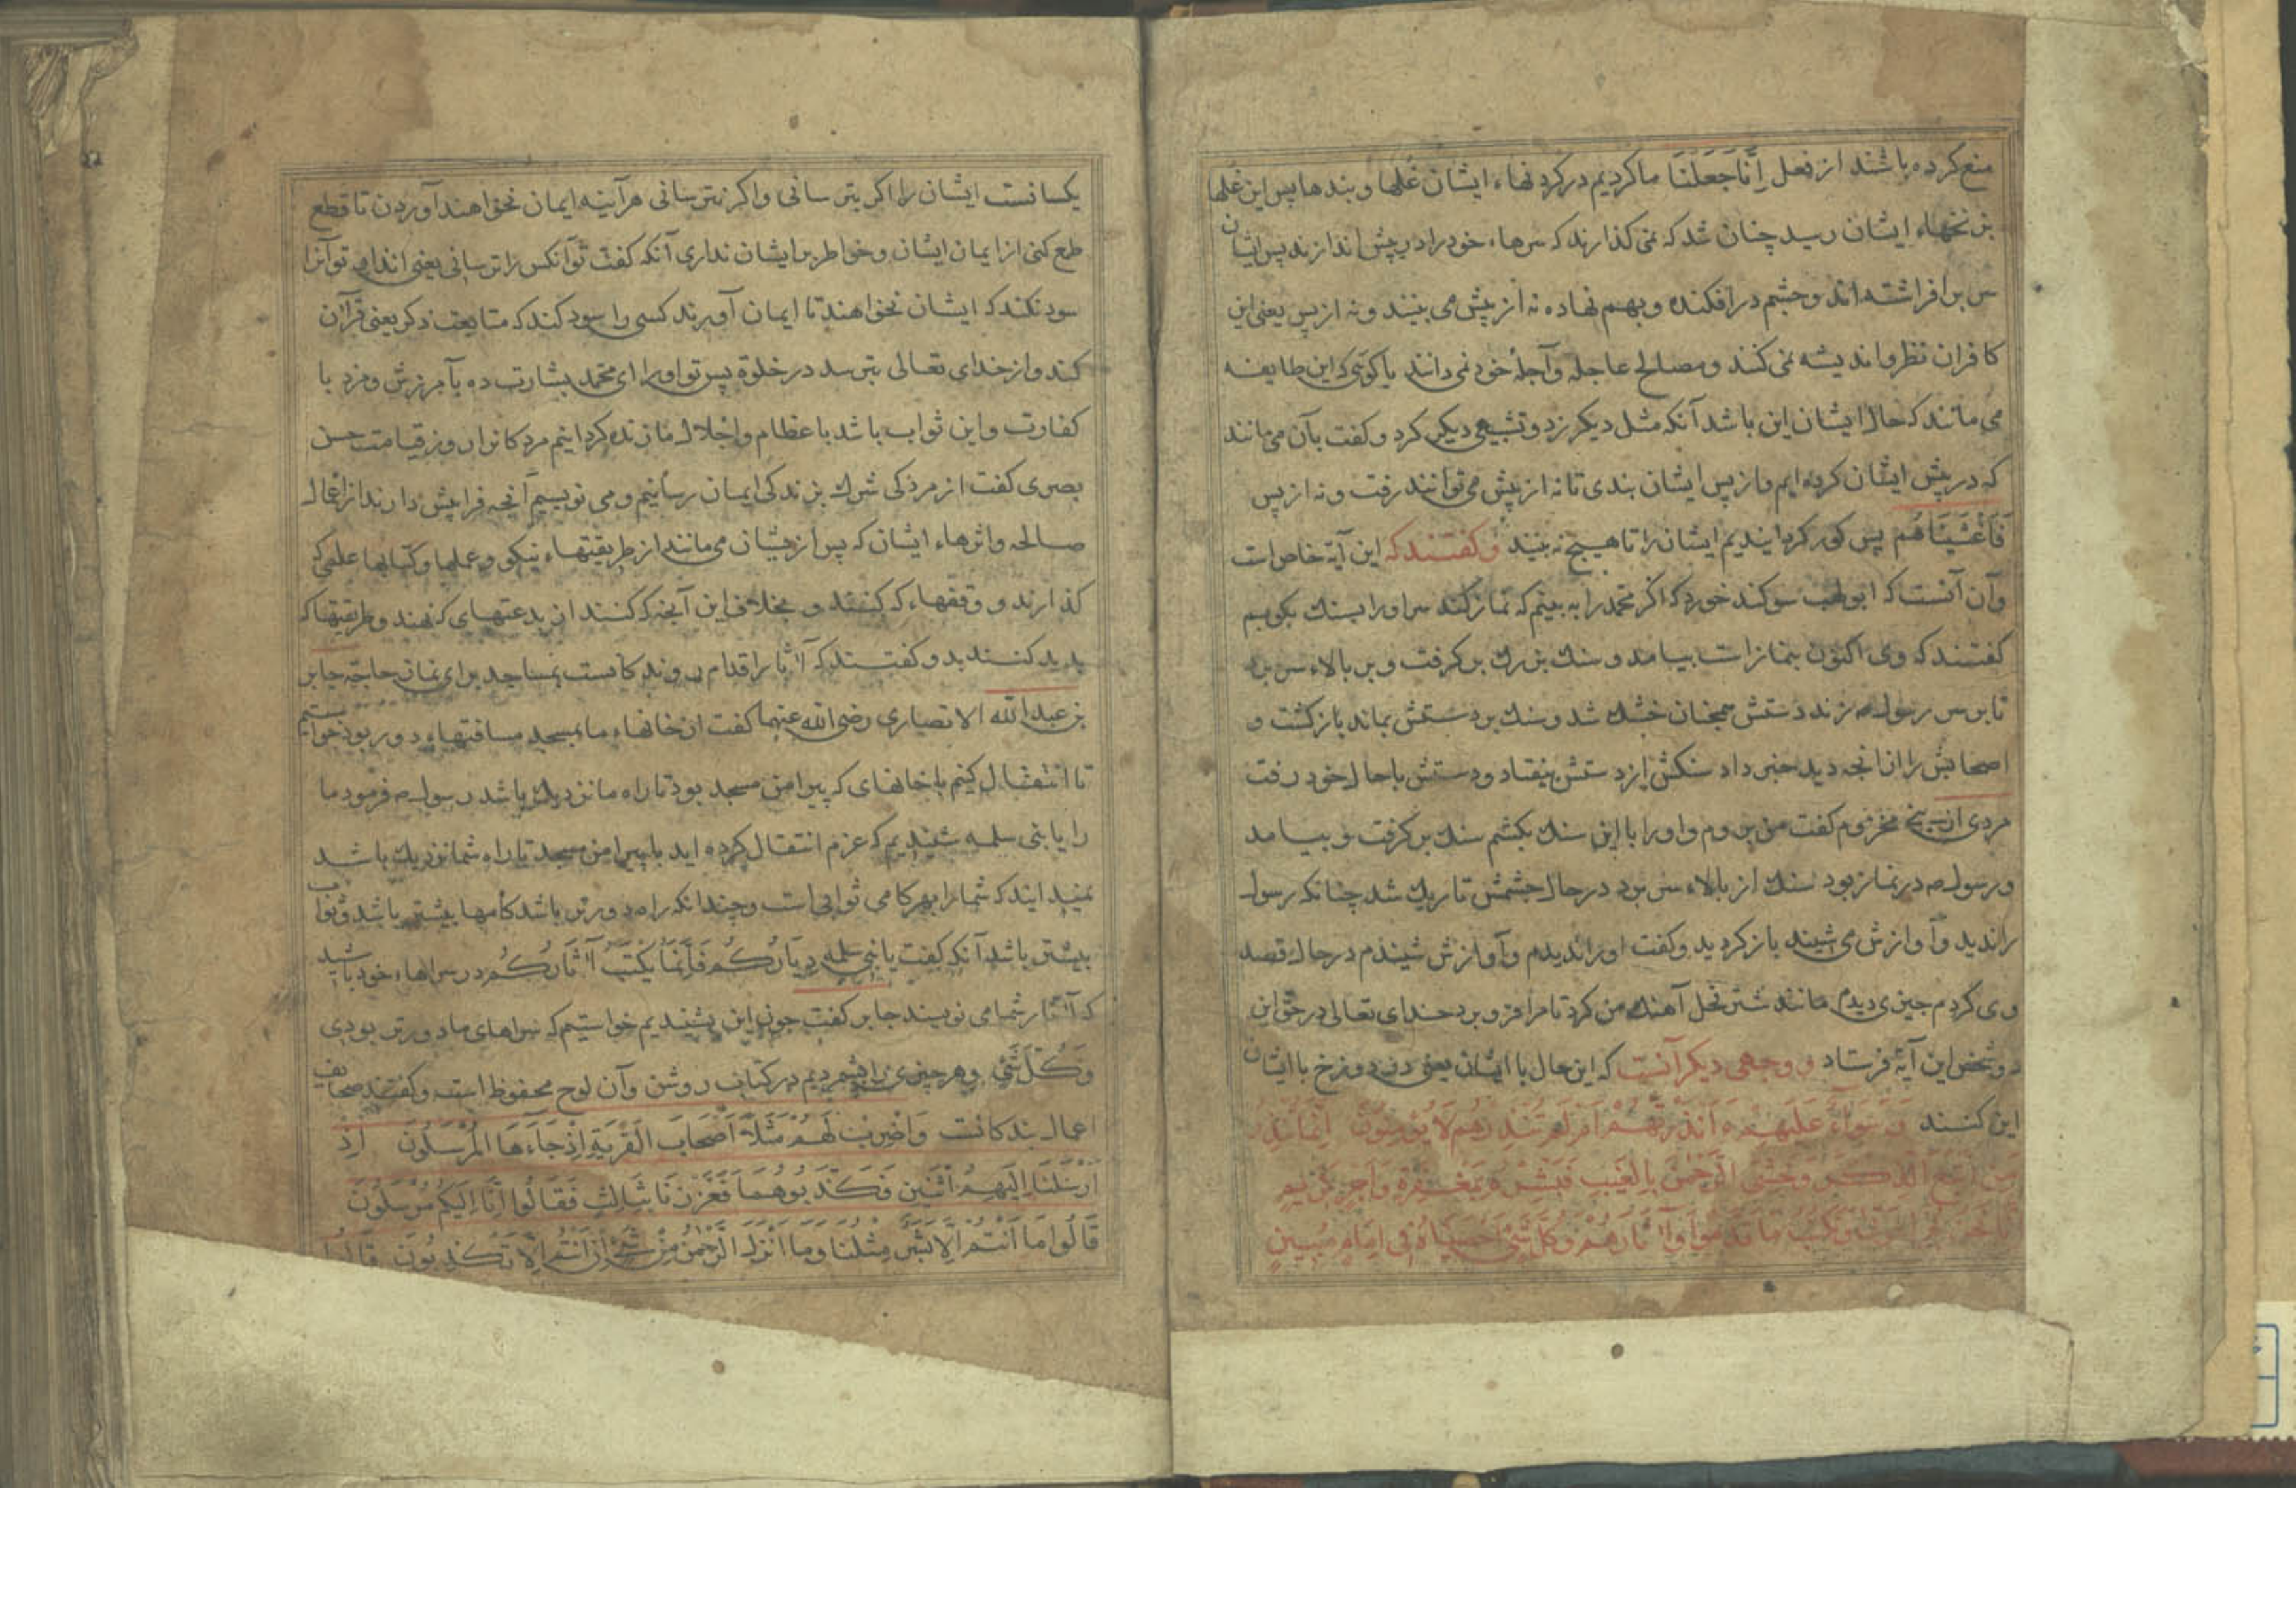 منع کرده باشند از فعل اِنَّا جَعَلنَا ما کردیم در کردنهاء ایشان غلها و بندها پس این غلها
بزنخهاء ایشان رسید چنان شد که نمی کذارند که سرهاء خود را در پیش اندازند پس ایشان
سر برافراشته اند و چشم در افکنده و بهم نهاده نه از پیش می بینند و نه از پس یعنی این
کافران نظر و اندیشه نمی کنند و مصالح عاجله و آجلهٔ خود نمی دانند یا کوئی که این طایفه
می مانند که حال ایشان این باشد آنکه مثل دیکر زد و تشبیهی دیکر کرد و کفت بآن می مانند
که در پیش ایشان کرده ایم و از پس ایشان بندی تا نه از پیش می توانند رفت و نه از پس
فَاَغْشَیْنَاهُم پس کور کردانیدیم ایشان را تا هیچ نه بینند و کفتند که این آیة خاص است
وآن آنست که ابو لهب سوکند خورد که اکر محمد را به بینم که نماز کند سر او را بسنك بکوبم
کفتند که وی اکنون بنماز است بیامد و سنك بزرك بر کرفت و بر بالاء سر برد
تا بر سر رسول ص زند دستش همچنان خشك شد و سنك بر دستش بماند باز کشت و
اصحابش را از انچه دید خبر داد سنکش از دستش بیفتاد و دستش باحال خود رفت
مردی از بنی مخزوم کفت من بروم و او را با این سنك بکشم سنك بر کرفت و بیامد
و رسول ص در نماز بود سنك از بالاء سر برد در حال چشمش تاریك شد چنانکه رسول
را ندید و آوازش می شنید باز کردید و کفت او را ندیدم و آوازش شنیدم در حال قصد
وی کردم چیزی دیدم مانند شتر فحل آهنك من کرد تا مرا فرو برد خدای تعالی در حق این
دو شخص این آیة فرستاد و وجهی دیکر آنست که این حال با ایشان یعنی در دوزخ با ایشان
این کنند وَ سَوَاءٌ عَلَیهِم ءَاَنذَرتَهُم اَم لَم تُنذِرهُم لَا یُؤمِنُونَ اِنَّمَا تُنذِرُ
مَنِ اتَّبَعَ الذِّکرَ وَ خَشِیَ الرَّحمٰنَ بِالغَیبِ فَبَشِّرهُ بِمَغفِرَةٍ وَ اَجرٍ کَرِیمٍ
اِنَّا نَحنُ نُحیِ المَوتٰی وَ نَکتُبُ مَا قَدَّمُوا وَ آثَارَهُم وَ کُلَّ شَیءٍ اَحصَینَاهُ فِی اِمَامٍ مُبِینٍ
یکسانست ایشان را اکر بترسانی و اکر نترسانی هرآینه ایمان نخواهند آوردن تا قطع
طمع کنی از ایمان ایشان و خواطر بر ایشان نداری آنکه کفت تو آنکس را ترسانی یعنی انذار تو آنرا
سود نکند که ایشان نخواهند تا ایمان آورند کسی را سود کند که متابعت ذکر یعنی قرآن
کند و از خدای تعالی بترسد در خلوة پس تو او را ای محمد بشارت ده بآمرزش و مزد با
کفارت و این ثواب باشد با عظام و اجلال ما زنده کردانیم مردکانرا روز قیامت حسن
بصری کفت از مردکی شرك بزندکی ایمان رسانیم و می نویسیم آنچه فرا پیش دارند از اعمال
صالحه و اثرهاء ایشان که پس از ایشان می مانند از طریقتهاء نیکو و عملها و کتابها علمی که
کذارند و وقفهاء که کنند و بخلاف این آنچه کنند از بدعتهای که نهند و طریقتها که
پدید کنند بد و کفتند که آثار اقدام روندکانست بمساجد برای نماز جماعة جابر
بن عبد الله الانصاری رضی الله عنهما کفت از خانهاء ما بمسجد مسافتهاء دور بود خواستیم
تا انتقال کنیم با خانهای که پیرامن مسجد بود تا راه ما نزدیك باشد رسول ص فرمود ما
را یا بنی سلمه شنیدیم که عزم انتقال کرده اید با پیرامن مسجد تا راه شما نزدیك باشد
نمیدانید که شما را بهر کامی ثوابی است و چندانکه راه دورتر باشد کامها بیشتر باشد و ثواب
بیشتر باشد آنکه کفت یا بنی سلمه دِیَارَکُم فَاِنَّمَا یُکتَبُ آثَارُکُم در سراهاء خود باشید
که آثار شما می نویسند جابر کفت چون این بشنیدیم خواستیم که سراهای ما دورتر بودی
وَکُلَّ شَیءٍ و هر چیزی را بشمردیم در کتاب روشن وآن لوح محفوظ است و کفتند صحایف
اعمال بندکانست وَاضرِب لَهُم مَثَلاً اَصحَابَ القَریَةِ اِذ جَاءَهَا المُرسَلُونَ اِذ
اَرسَلنَا اِلَیهِمُ اثنَینِ فَکَذَّبُوهُمَا فَعَزَّزنَا بِثَالِثٍ فَقَالُوا اِنَّا اِلَیکُم مُرسَلُونَ
قَالُوا مَا اَنتُم اِلَّا بَشَرٌ مِثلُنَا وَمَا اَنزَلَ الرَّحمٰنُ مِن شَیءٍ اِن اَنتُم اِلَّا تَکذِبُونَ قَالُوا